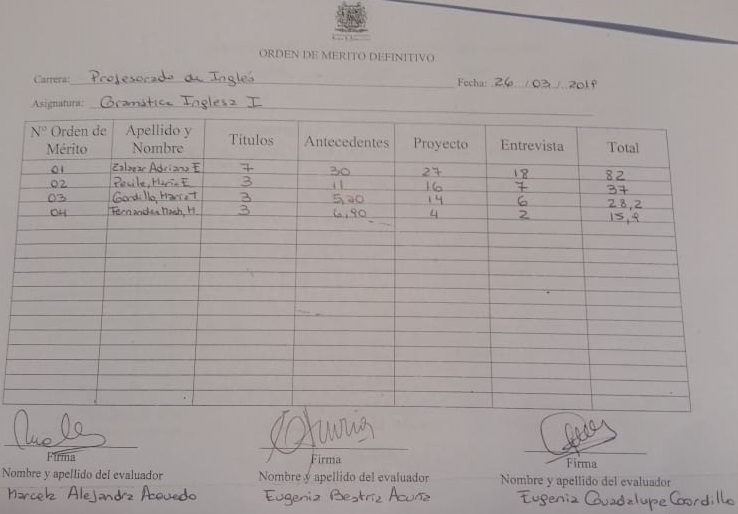 ORDEN DE MERITO DEFINITIVO
Carrera: Profesorado de Inglés Fecha: 26 / 03 / 2019
Asignatura: Gramática Inglesa I
N° Orden de Mérito Apellido y Nombre Títulos Antecedentes Proyecto Entrevista Total
01 Adriana E 7 30 27 18 82
02 María E. 3 11 16 7 37
03 Gordillo, María T 3 5,20 14 6 28,2
04 Fernandez H. 3 6,90 4 2 15,9
Firma Firma Firma
Nombre y apellido del evaluador Nombre y apellido del evaluador Nombre y apellido del evaluador
Marcela Alejandra Acevedo Eugenia Beatriz Acuña Eugenia Guadalupe Gordillo